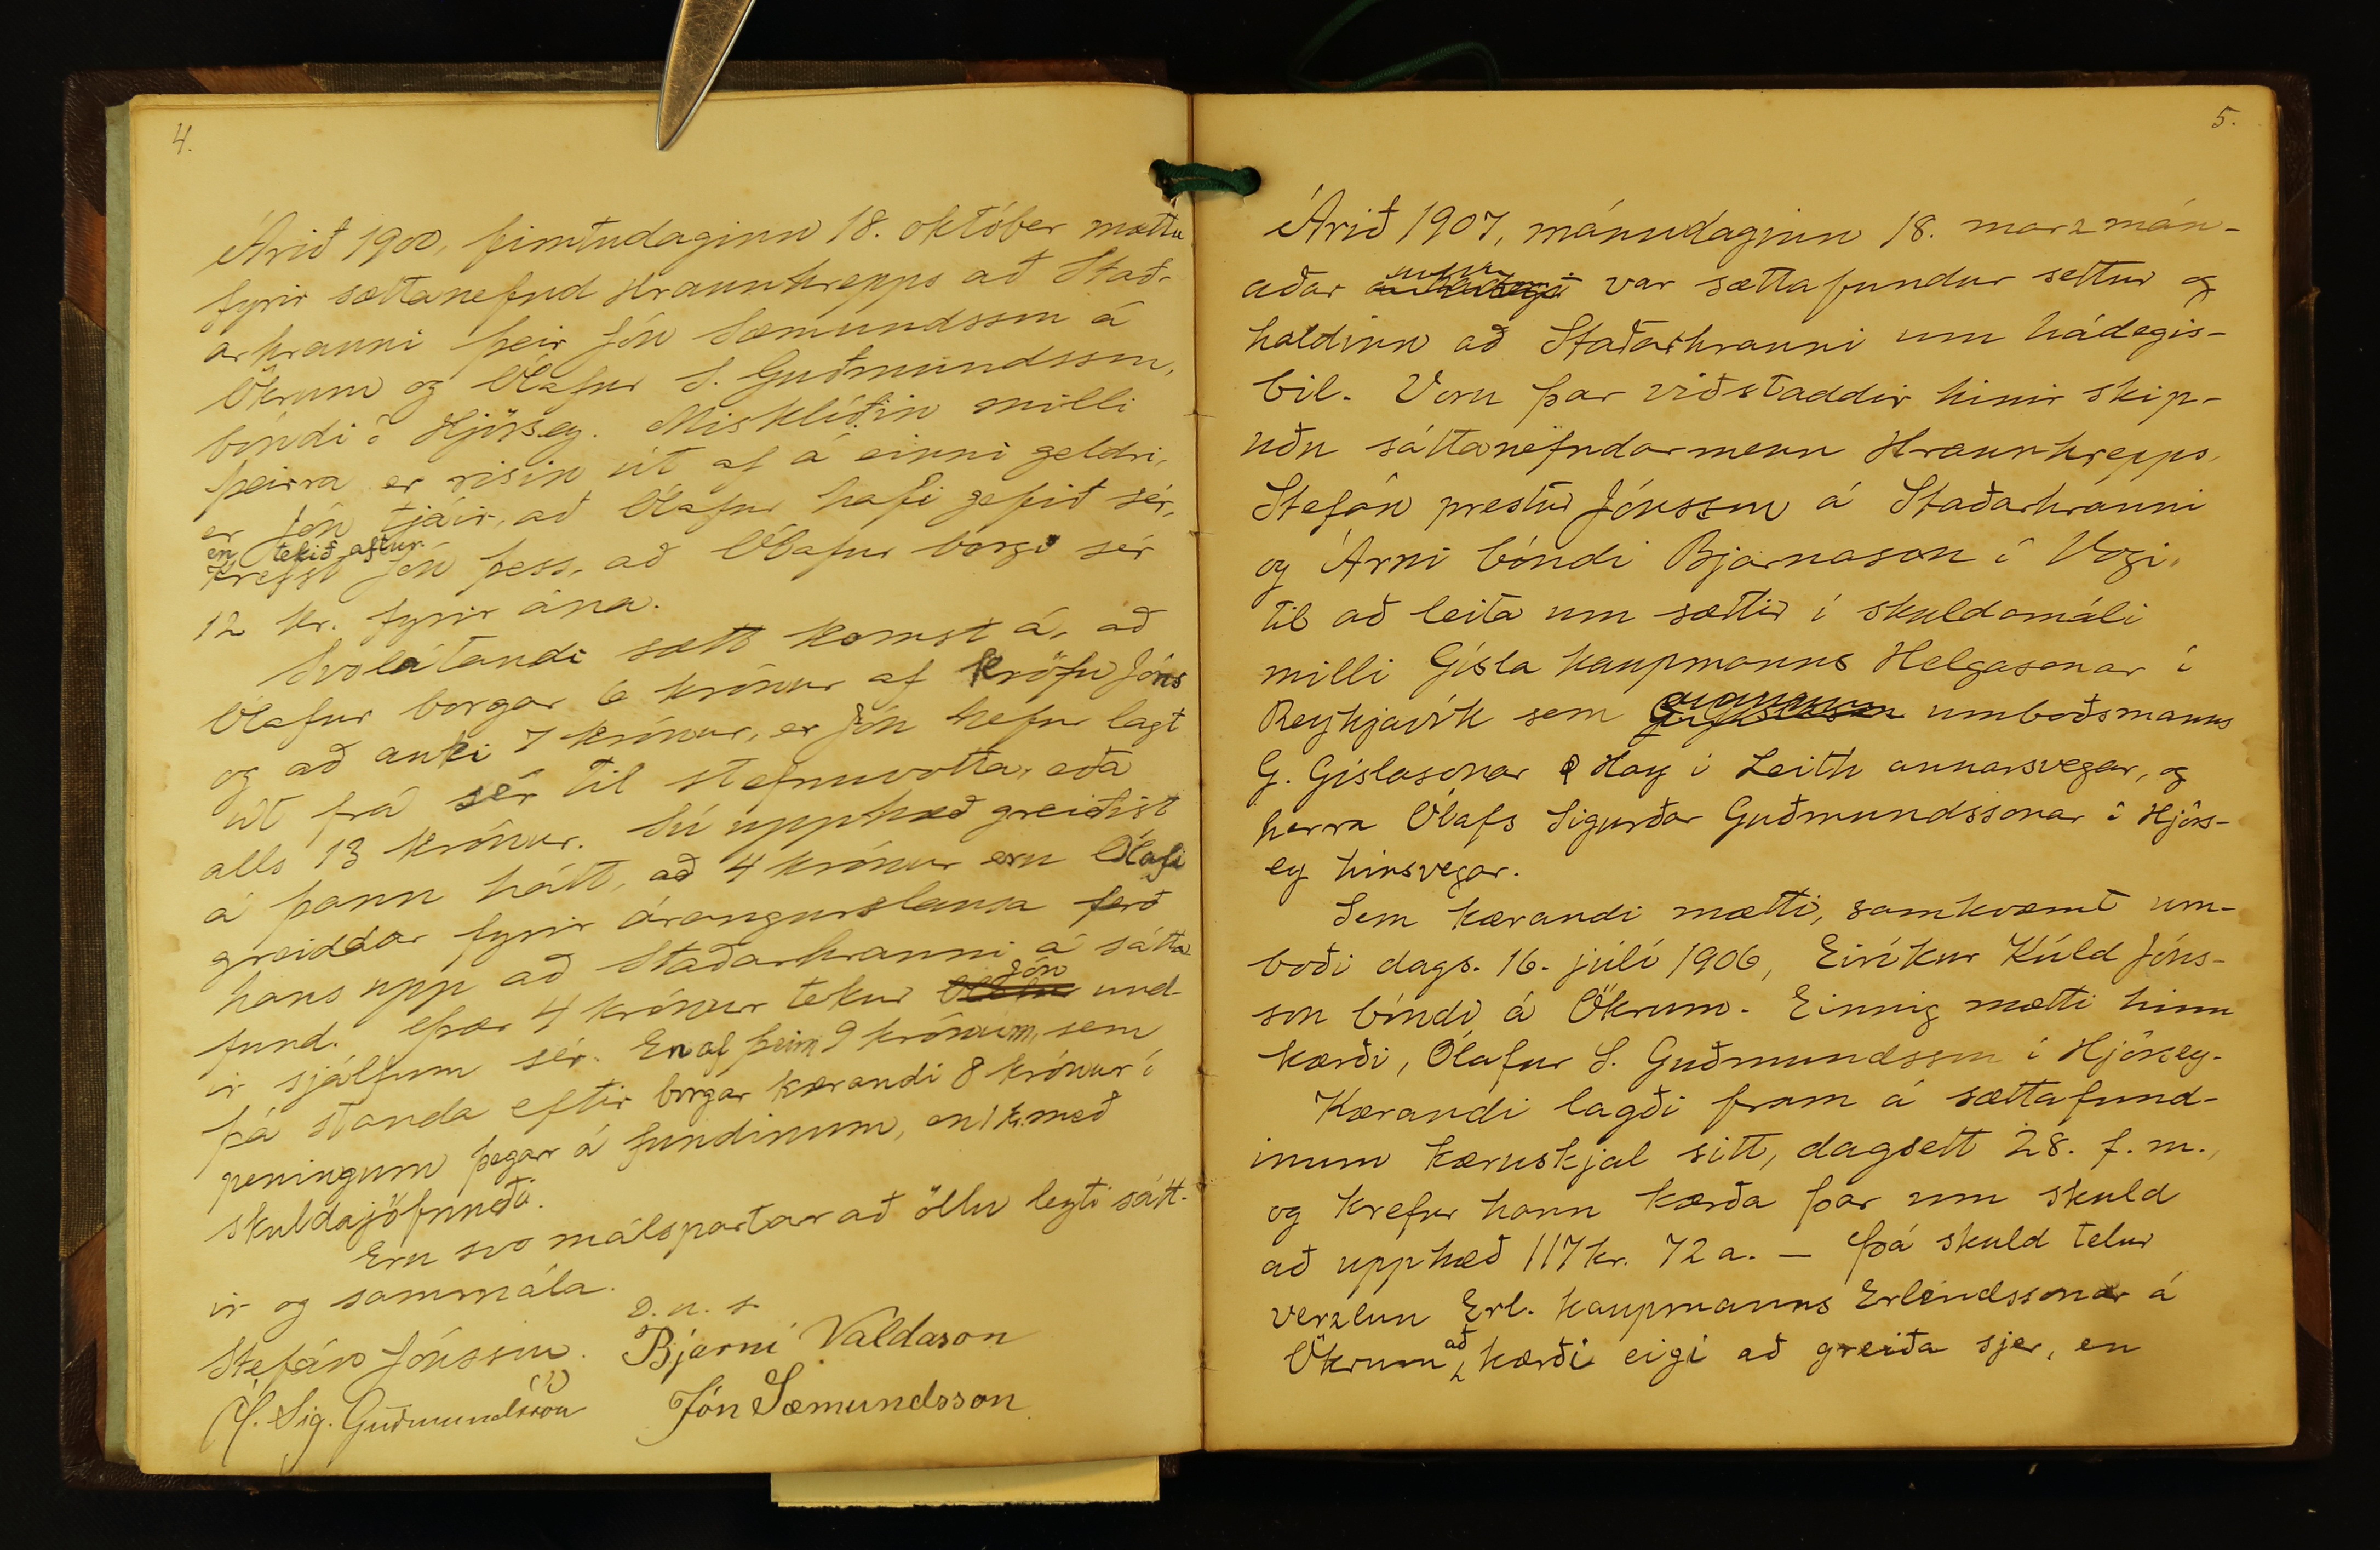 4.
Árið 1900, fimtudaginn 18. október mættu
fyrir sættanefnd Hraunhrepps að Stað-
arhrauni þeir Jón Sæmundsson á
Ökrum og Ólafur S. Guðmundsson,
bóndi í Hjörsey. Misklíðin milli
þeirra er risin út af á einni geldri,
er Jón tjáir, að Ólafur hafi gefið sér,
en tekið aftur.
Krefst Jón þess, að Ólafur borgi sér
12 kr. fyrir ána.
Svolátandi sætt komst á, að
Ólafur borgar 6 krónur af kröfu Jóns
og að auki 7 krónur, er Jón hefur lagt
út frá sér til stefnuvotta, eða
alls 13 krónur. Sú upphæð greiðist
á þann hátt, að 4 krónur eru Ólafi
greiddar fyrir árangurslausa ferð
hans upp að Staðarhrauni á sátta
fund. Þær 4 krónur tekur Ólafur Jón und-
ir sjálfum sér. En af þeim 9 krónum, sem
þá standa eftir borgar kærandi 8 krónur í
peningum þegar á fundinum, en 1 kr. með
skuldajöfnuði.
Eru svo málspartar að öllu leyti sátt-
ir og sammála.
D. u. s.
Stefán Jónsson. Bjarni Valdason
Ó. Sig. Guðmundsson Jón Sæmundsson
5.
Árið 1907, mánudaginn 18. marzmán-
aðar var sættafundur settur og
haldinn að Staðarhrauni um hádegis-
bil. Voru þar viðstaddir hinir skip-
uðu sáttanefndarmenn Hraunhrepps,
Stefán prestur Jónsson á Staðarhrauni
og Árni bóndi Bjarnason í Vogi,
til að leita um sættir í skuldamáli
milli Gísla kaupmanns Helgasonar í
Reykjavík sem umboðsmanns
G. Gíslasonar & Hay í Leith annarsvegar, og
herra Ólafs Sigurðar Guðmundssonar í Hjörs-
ey hinsvegar.
Sem kærandi mætti, samkvæmt um-
boði dags. 16. júlí 1906, Eiríkur Kúld Jóns-
son bóndi á Ökrum. Einnig mætti hinn
kærði, Ólafur S. Guðmundsson í Hjörsey.
Kærandi lagði fram á sættafund-
inum kæruskjal sitt, dagsett 28. f. m.,
og krefur hann kærða þar um skuld
að upphæð 117 kr. 72 a. — Þá skuld telur
verzlun Erl. kaupmanns Erlendssonar á
Ökrum að kærði eigi að greiða sjer, en